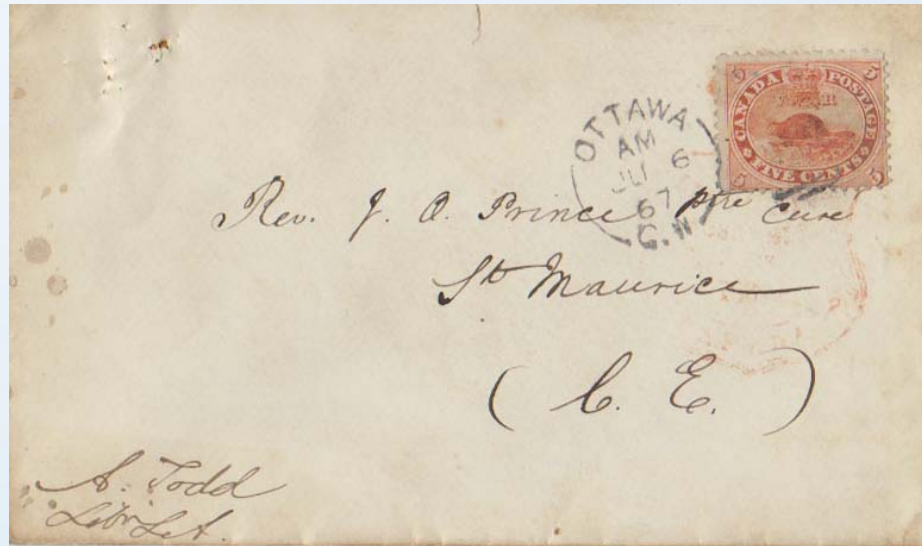 5 CANADA POSTAGE 5
5 FIVE CENTS 5
OTTAWA
AM
JU 6
67
C.W
Rev. J. O. Prince Ptre Curé
St Maurice
( C. E. )
A. Todd
Libn L. A.